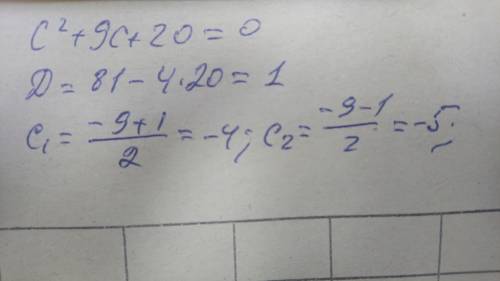 C²+9C+20=0
D=81-4·20=1
C₁=(-9+1)/2=-4; C₂=(-9-1)/2=-5;